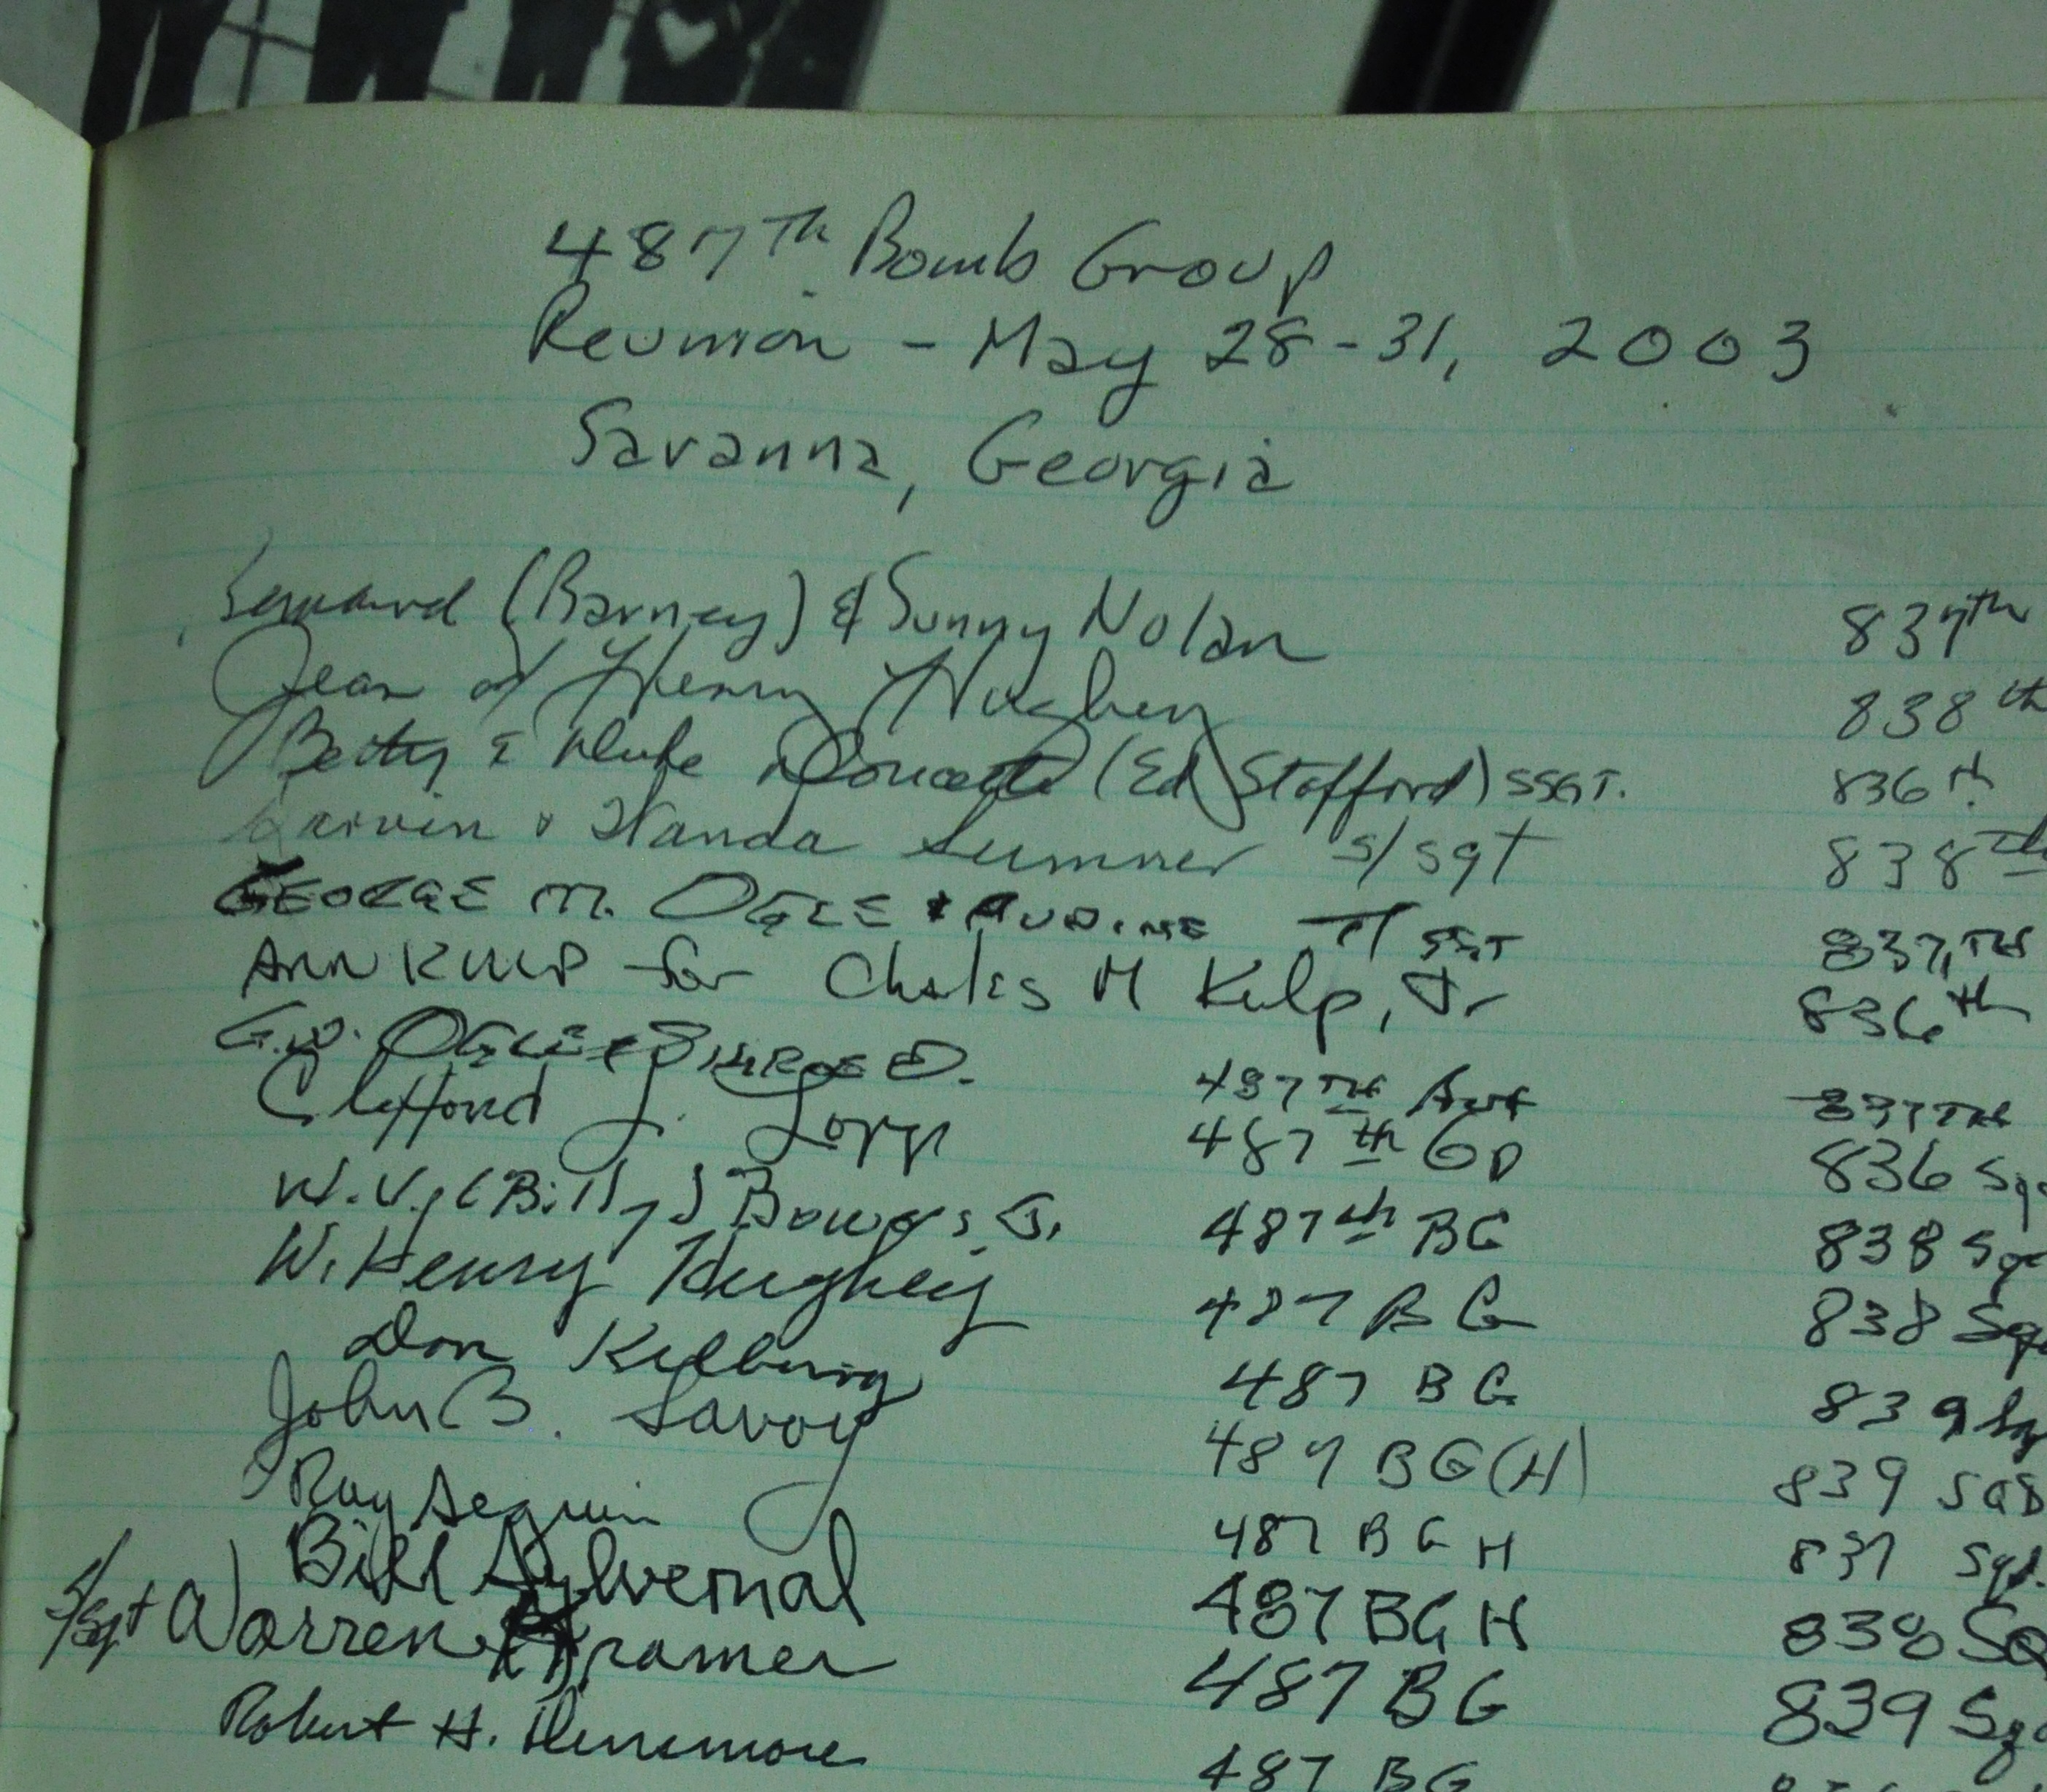 487Th Bomb Group
Reunion - May 28-31, 2003
Savanna, Georgia
Bernard (Barney) & Sunny Nolan 837th
Jean & Henry Hughey 838th
Betty & Duke (Ed Stofford) SSGT. 836th
& Wanda Sumner S/Sgt 838th
GEORGE M. OGLE & AUDINE T/SGT 837TH
ANN KULP for Charles M Kulp, Jr 836th
G.W. OGLE & 487TH 837TH
Clifford J. 487th GP 836
W.V. (Billy) Bowers Jr. 487th BG 838
W. Henry Hughey 487 BG 838
Don 487 BG 839
John B. Savoy 487 BG (H) 839 SQD
Ray Seguin 487 BG H 837 Sqd.
Bill Sylvernal 487 BG H 838
S/Sgt Warren Kramer 487 BG 839
Robert H. Densmore 487 BG